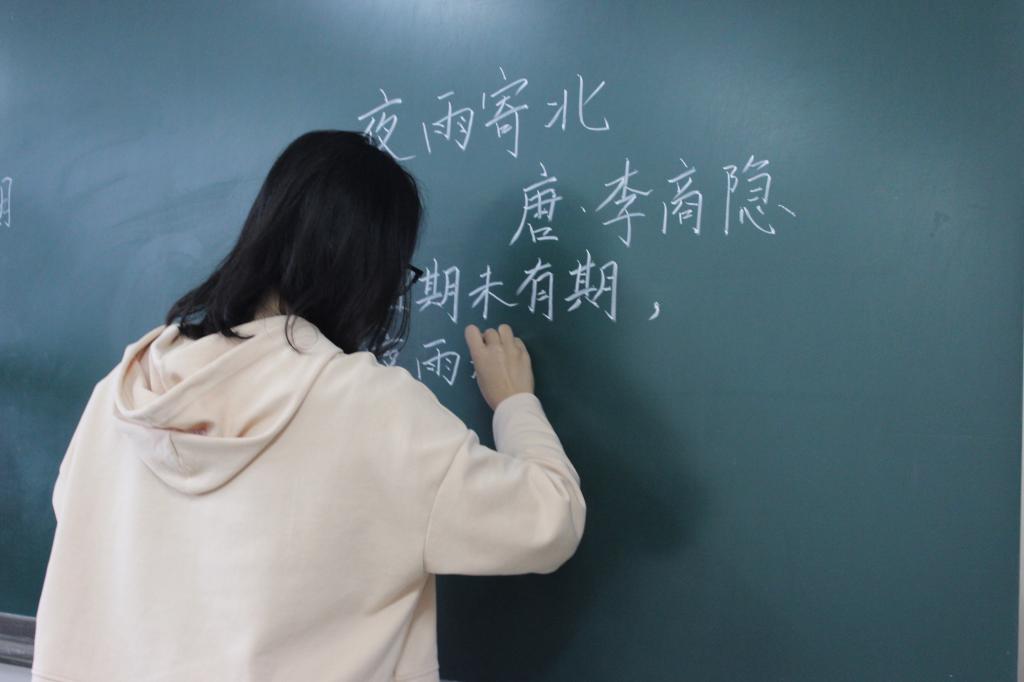 夜雨寄北
唐·李商隐
期未有期，
雨
期